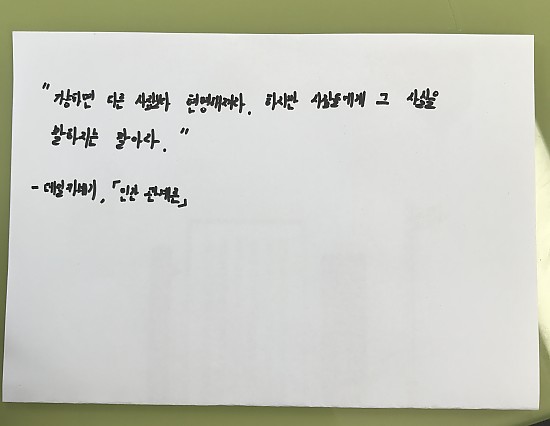 "가능하면 다른 사람보다 현명해져라. 하지만 사람들에게 그 사실을
말하지는 말아라."
- 데일카네기, 「인간 관계론」